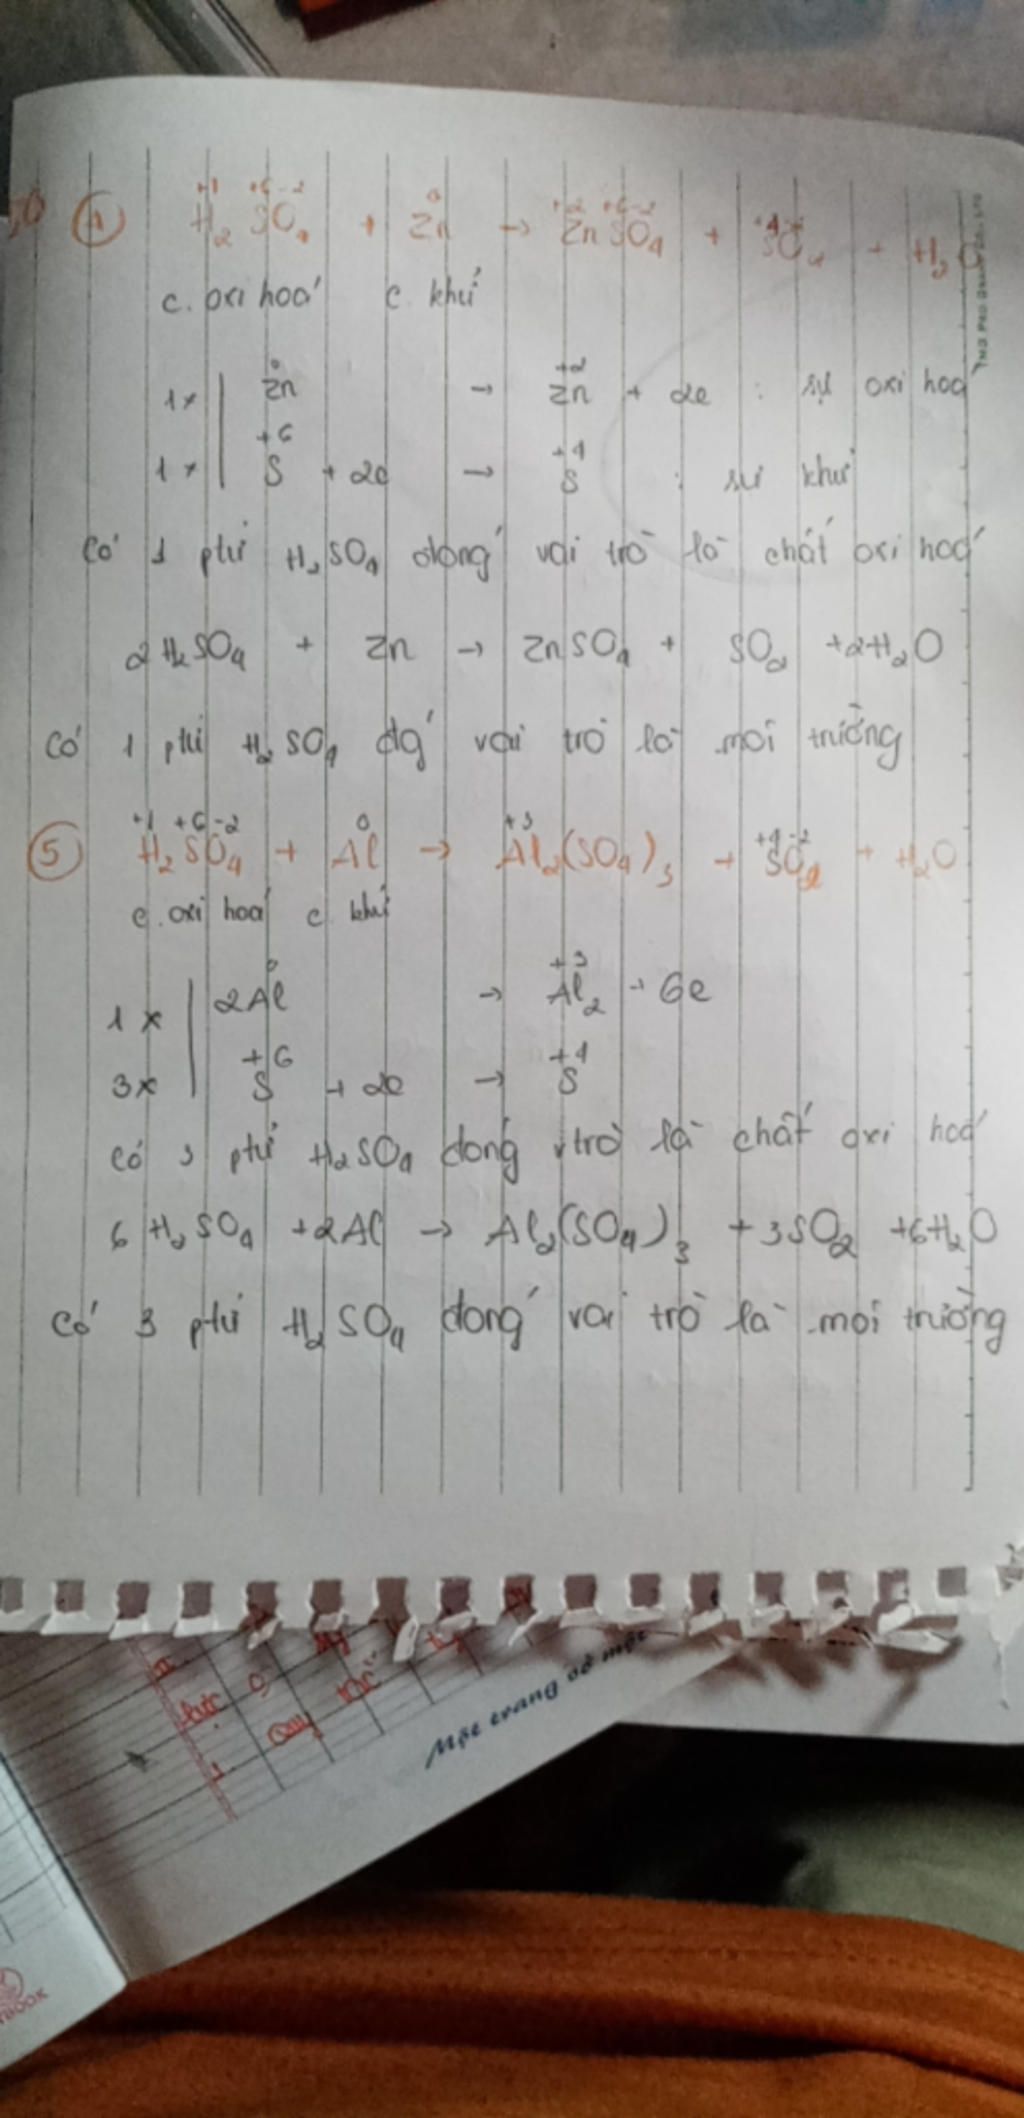 ④ H₂SO₄ + Zn → ZnSO₄ + SO₂ + H₂O
+1 +6 -2 0 +2 +6 -2 +4 -2
c. oxi hoá c. khử
1x | Zn⁰ → Zn⁺² + 2e : sự oxi hoá
1x | S⁺⁶ + 2e → S⁺⁴ : sự khử
Có 1 ptử H₂SO₄ đóng vai trò là chất oxi hoá
2H₂SO₄ + Zn → ZnSO₄ + SO₂ + 2H₂O
Có 1 ptử H₂SO₄ đg vai trò là môi trường
+1 +6 -2 0 +3 +4 -2
⑤ H₂SO₄ + Al → Al₂(SO₄)₃ + SO₂ + H₂O
c. oxi hoá c. khử
1x | 2Al⁰ → Al₂⁺³ + 6e
3x | S⁺⁶ + 2e → S⁺⁴
Có 3 ptử H₂SO₄ đóng vtrò là chất oxi hoá
6H₂SO₄ + 2Al → Al₂(SO₄)₃ + 3SO₂ + 6H₂O
Có 3 ptử H₂SO₄ đóng vai trò là môi trường
Một trang sổ mới